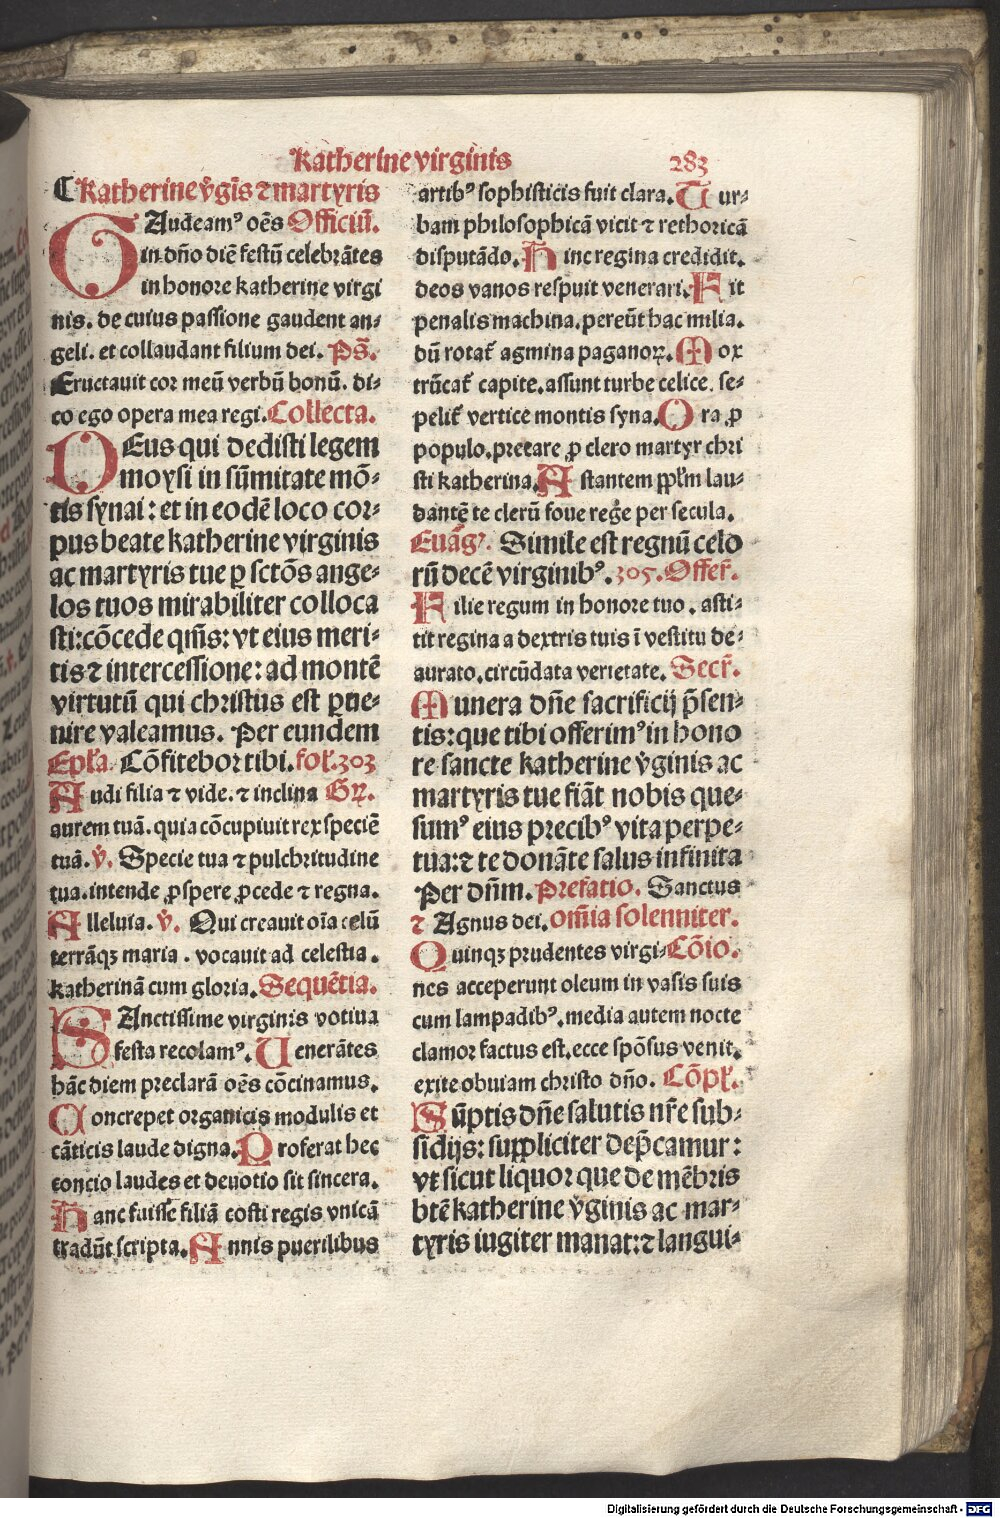 Katherine virginis 283
Katherine v̓gīs ⁊ martyris
GAudeamꝰ oēs Officiū.
in dn̄o diē festū celebrātes
in honore katherine virgi
nis. de cuius passione gaudent an⸗
geli. et collaudant filium dei. Ps̄.
Eructauit cor meū verbū bonū. di⸗
co ego opera mea regi. Collecta.
DEus qui dedisti legem
moysi in sūmitate mō⸗
tis synai : et in eodē loco cor⸗
pus beate katherine virginis
ac martyris tue ꝑ sctōs ange⸗
los tuos mirabiliter colloca
sti: cōcede qs̄s: vt eius meri⸗
tis ⁊ intercessione: ad montē
virtutū qui christus est ꝑue⸗
nire valeamus. Per eundem
Epl̓a. Cōfitebor tibi. fol̓. 303
Audi filia ⁊ vide. ⁊ inclina Gꝝ.
aurem tuā. quia cōcupiuit rex speciē
tuā. v̓. Specie tua ⁊ pulchritudine
tua. intende ꝓspere ꝓcede ⁊ regna.
Alleluia. v̓. Qui creauit oīa celū
terrāqꝫ maria . vocauit ad celestia .
katherinā cum gloria. Sequētia.
SAnctissime virginis votiua
festa recolamꝰ. Uenerātes
hāc diem preclarā oēs cōcinamus.
Concrepet organicis modulis et
cāticis laude digna. Proferat hec
concio laudes et deuotio sit sincera.
Hanc fuisse filiā costi regis vnicā
tradūt scripta. Annis puerilibus
artibꝰ sophisticis fuit clara. Tur⸗
bam philosophicā vicit ⁊ rethoricā
disputādo. Hinc regina credidit.
deos vanos respuit venerari. Fit
penalis machina. pereūt hac milia.
dū rotat̄ agmina paganoꝝ. Mox
trūcat̄ capite. assunt turbe celice. se⸗
pelit̄ vertice montis syna. Ora ꝓ
populo. precare ꝓ clero martyr chri
sti katherina. Astantem ppl̓m lau⸗
dantē te clerū foue reg̓e per secula.
Euāgꝰ. Simile est regnū celo
rū decē virginibꝰ. 305. Offer̄.
Filie regum in honore tuo . asti⸗
tit regina a dextris tuis ī vestitu de⸗
aurato. circūdata verietate. Secr̄.
Munera dn̄e sacrificij p̄sen⸗
tis: que tibi offerimꝰ in hono
re sancte katherine v̓ginis ac
martyris tue fiāt nobis que⸗
sumꝰ eius precibꝰ vita perpe⸗
tua: ⁊ te donāte salus infinita
Per dn̄m. Prefatio. Sanctus
⁊ Agnus dei. om̄ia solenniter.
Quinqꝫ prudentes virgi⸗ Cōio.
nes acceperunt oleum in vasis suis
cum lampadibꝰ. media autem nocte
clamor factus est. ecce spōsus venit.
exite obuiam christo dn̄o. Cōpl̓.
Sūptis dn̄e salutis nr̄e sub⸗
sidijs: suppliciter dep̄camur :
vt sicut liquor que de mēbris
btē katherine v̓ginis ac mar⸗
tyris iugiter manat: ⁊ langui⸗
Digitalisierung gefördert durch die Deutsche Forschungsgemeinschaft - DFG